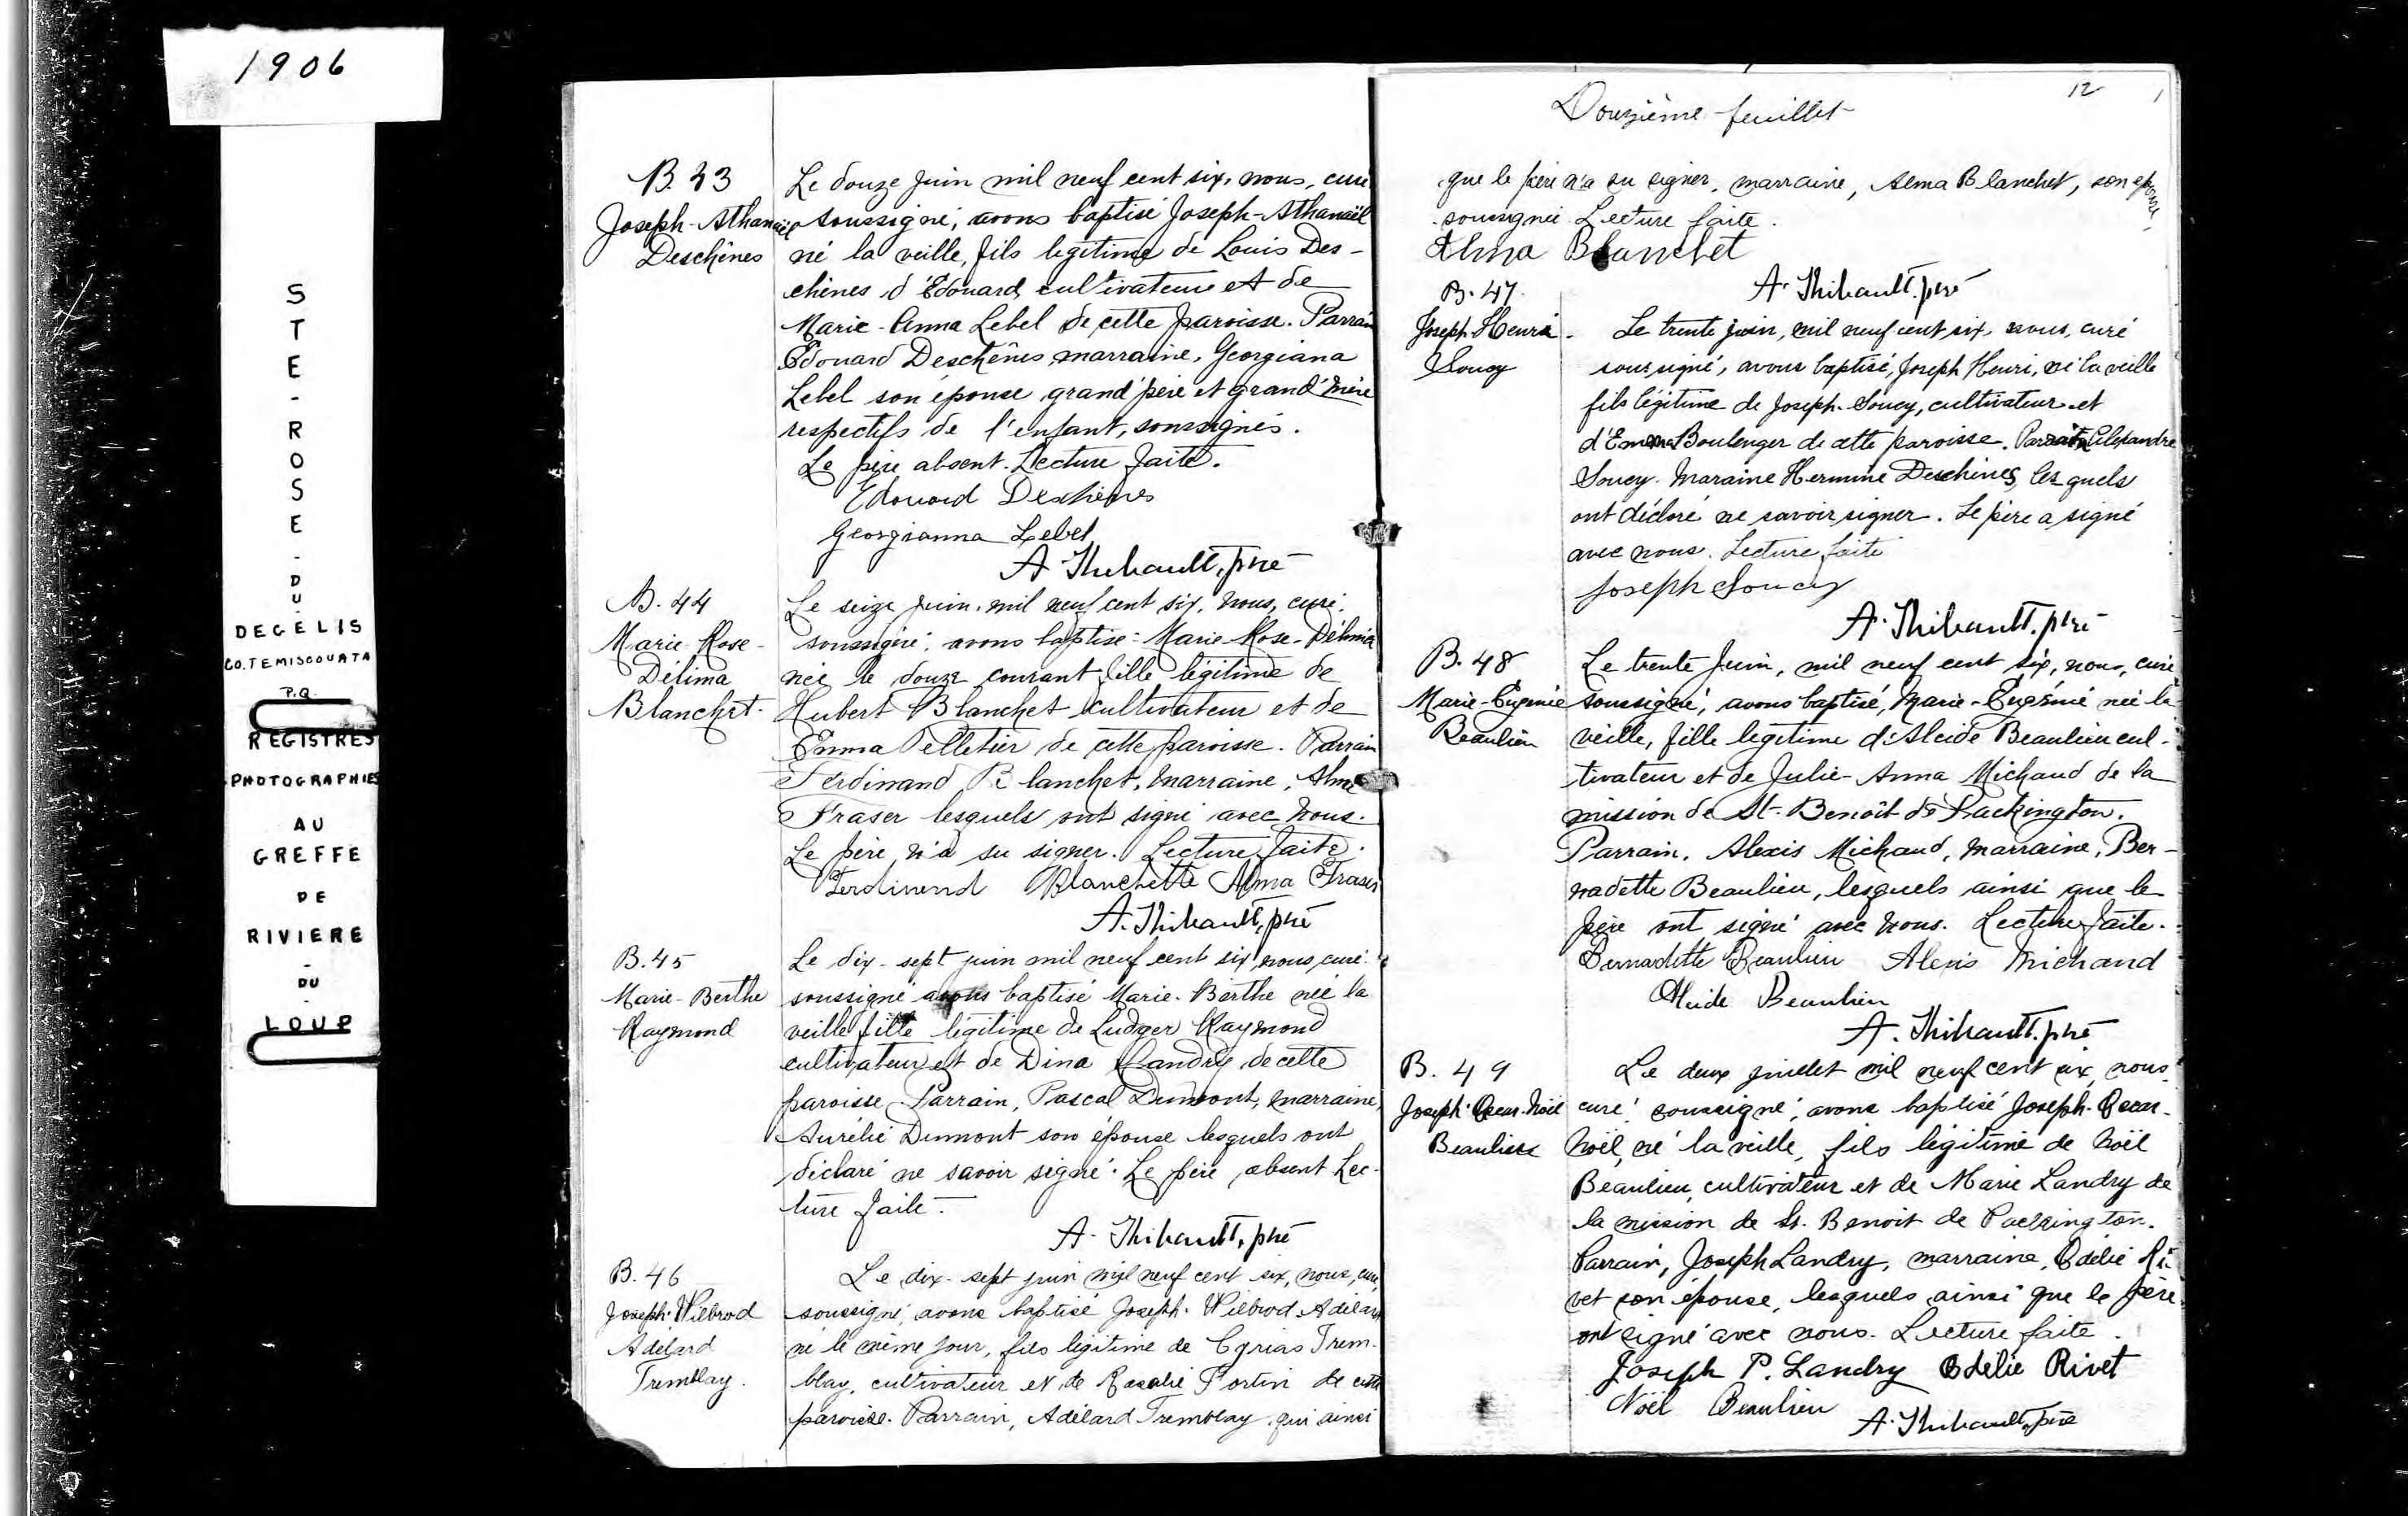 1906
STE-ROSE-DU-
DEGELIS
CO. TEMISCOUATA
P.Q.
REGISTRES
PHOTOGRAPHIES
AU
GREFFE
DE
RIVIERE
-
DU
-
LOUP
B. 43
Joseph-Athanaël
Deschênes
Le douze juin mil neuf cent six, nous, curé
soussigné, avons baptisé Joseph-Athanaël
né la veille, fils légitime de Louis Des-
chênes d'Edouard cultivateur et de
Marie-Anna Lebel de cette paroisse. Parrain
Edouard Deschênes marraine, Georgiana
Lebel son épouse grand'père et grand'mère
respectifs de l'enfant, soussignés.
Le père absent. Lecture faite.
Edouard Deschênes
Georgianna Lebel
A Thibault, ptre
B. 44
Marie Rose-
Délima
Blanchet.
Le seize juin, mil neuf cent six, nous, curé
soussigné, avons baptisé: Marie-Rose-Délima
née le douze courant fille légitime de
Hubert Blanchet cultivateur et de
Emma Pelletier de cette paroisse. Parrain
Ferdinand Blanchet, marraine, Alma
Fraser lesquels ont signé avec nous.
Le père n'a su signer. Lecture faite.
Ferdinend Blanchette Alma Fraser
A. Thibault, ptre
B. 45
Marie-Berthe
Raymond
Le dix-sept juin mil neuf cent six, nous, curé
soussigné avons baptisé Marie-Berthe née la
veille fille légitime de Ludger Raymond
cultivateur et de Dina Landry de cette
paroisse. Parrain, Pascal Dumont, marraine,
Aurélie Dumont son épouse lesquels ont
déclaré ne savoir signé. Le père absent Lec-
ture faite.
A. Thibault, ptre
B. 46
Joseph-Wilbrod
Adélard
Tremblay.
Le dix-sept juin mil neuf cent six, nous, curé
soussigné, avons baptisé Joseph-Wilbrod Adélard
né le même jour, fils légitime de Cyrias Trem-
blay, cultivateur et de Rosalie Fortin de cette
paroisse. Parrain, Adélard Tremblay qui ainsi
12
Douzième feuillet
que le père n'a su signer, marraine, Alma Blanchet, son épouse,
soussignée Lecture faite.
Alma Blanchet
A. Thibault, ptre
B. 47.
Joseph-Henri
Soucy
Le trente juin, mil neuf cent six, nous, curé
soussigné, avons baptisé, Joseph Henri, né la veille
fils légitime de Joseph Soucy, cultivateur et
d'Emma Boulenger de cette paroisse. Parrain Alexandre
Soucy. Maraine Hermine Deschênes, lesquels
ont déclaré ne savoir signer. Le père a signé
avec nous. Lecture faite
Joseph Soucy
A. Thibault, ptre
B. 48
Marie-Eugénie
Beaulieu
Le trente juin, mil neuf cent six, nous, curé
soussigné, avons baptisé, Marie-Eugénie née la
veille, fille légitime d'Alcide Beaulieu cul-
tivateur et de Julie-Anna Michaud de la
mission de St-Benoît de Packington.
Parrain, Alexis Michaud, marraine, Ber-
nadette Beaulieu, lesquels ainsi que le
père ont signé avec nous. Lecture faite.
Bernadette Beaulieu Alexis Michaud
Alcide Beaulieu
A. Thibault, ptre
B. 49
Joseph-Oscar-Noël
Beaulieu
Le deux juillet mil neuf cent six, nous,
curé soussigné, avons baptisé Joseph-Oscar-
Noël, né la veille, fils légitime de Noël
Beaulieu, cultivateur et de Marie Landry de
la mission de St. Benoit de Packington.
Parrain, Joseph Landry, marraine, Odélie Ri-
vet son épouse, lesquels ainsi que le père
ont signé avec nous. Lecture faite.
Joseph P. Landry Odélie Rivet
Noël Beaulieu
A. Thibault, ptre